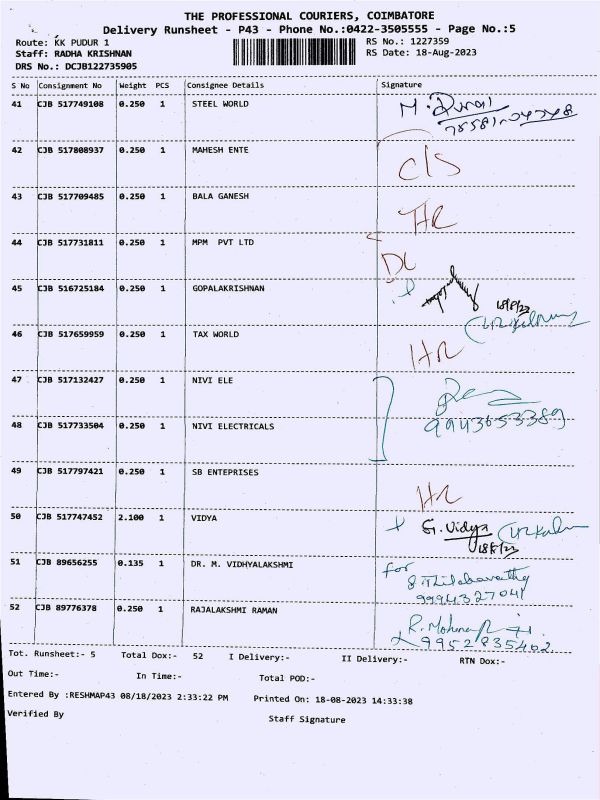 THE PROFESSIONAL COURIERS, COIMBATORE
Delivery Runsheet - P43 - Phone No.:0422-3505555 - Page No.:5
Route: KK PUDUR 1 RS No.: 1227359
Staff: RADHA KRISHNAN RS Date: 18-Aug-2023
DRS No.: DCJB122735905
S No Consignment No Weight PCS Consignee Details Signature
41 CJB 517749108 0.250 1 STEEL WORLD
42 CJB 517808937 0.250 1 MAHESH ENTE C/S
43 CJB 517709485 0.250 1 BALA GANESH HR
44 CJB 517731811 0.250 1 MPM PVT LTD DL
45 CJB 516725184 0.250 1 GOPALAKRISHNAN 18/8/23
46 CJB 517659959 0.250 1 TAX WORLD HR
47 CJB 517132427 0.250 1 NIVI ELE
48 CJB 517733504 0.250 1 NIVI ELECTRICALS 9943653389
49 CJB 517797421 0.250 1 SB ENTEPRISES HR
50 CJB 517747452 2.100 1 VIDYA G. Vidya
18/8/23
51 CJB 89656255 0.135 1 DR. M. VIDHYALAKSHMI for
9994327041
52 CJB 89776378 0.250 1 RAJALAKSHMI RAMAN R. Mohna
9952835402
Tot. Runsheet:- 5 Total Dox:- 52 I Delivery:- II Delivery:- RTN Dox:-
Out Time:- In Time:- Total POD:-
Entered By :RESHMAP43 08/18/2023 2:33:22 PM Printed On: 18-08-2023 14:33:38
Verified By Staff Signature